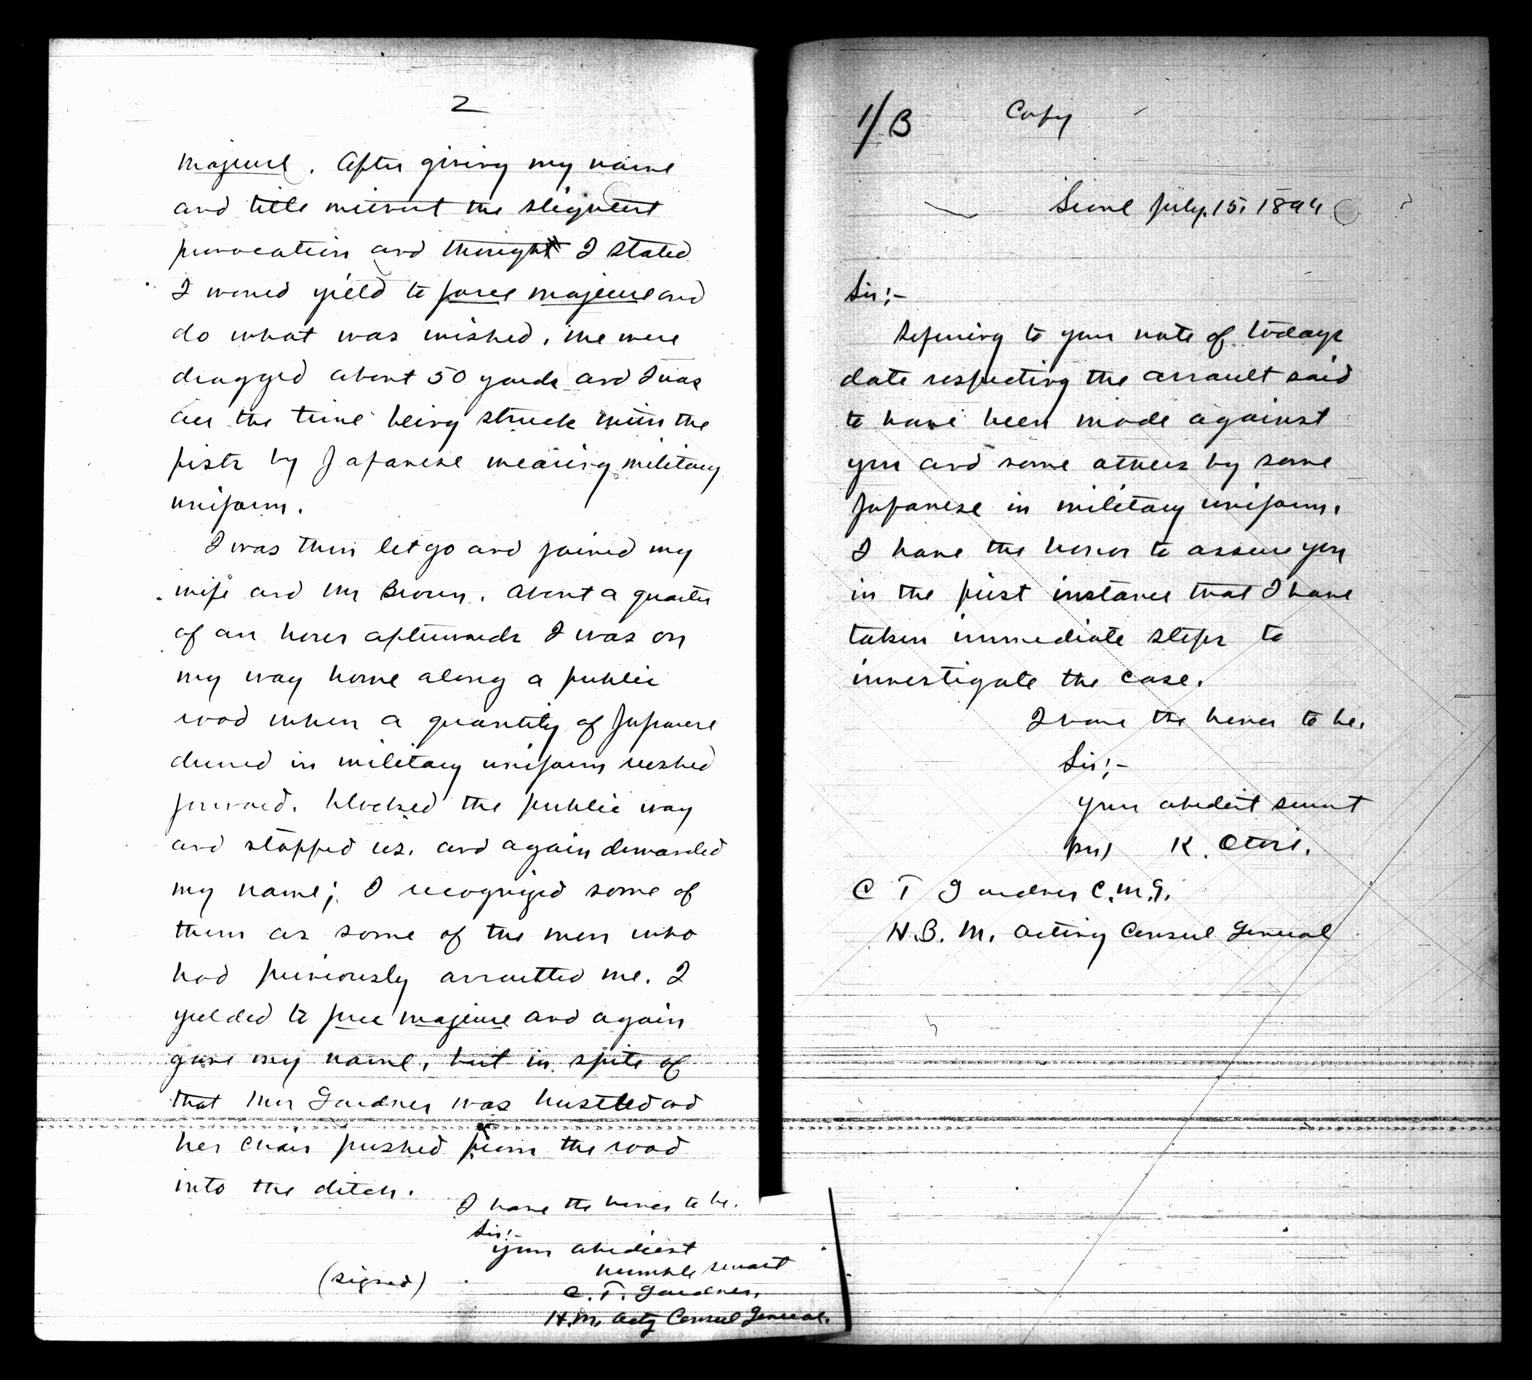 2
majeure. After giving my name
and title without the slightest
provocation and though I stated
I would yield to force majeure and
do what was wished, we were
dragged about 50 yards and I was
all the time being struck with the
fists by Japanese wearing military
uniform.
I was then let go and joined my
wife and Mr Brown. About a quarter
of an hour afterwards I was on
my way home along a public
road when a quantity of Japanese
dressed in military uniform rushed
forward, blocked the public way
and stopped us, and again demanded
my name; I recognized some of
them as some of the men who
had previously assaulted me. I
yielded to force majeure and again
gave my name, but in spite of
that Mrs Gardner was hustled and
her chair pushed from the road
into the ditch.
I have the honor to be.
Sir:-
Your obedient
humble servant
(signed)
C. T. Gardner.
H.M. Actg Consul General.
1/B
Copy
Seoul July. 15, 1894
Sir:-
Referring to your note of todays
date respecting the assault said
to have been made against
you and some others by some
Japanese in military uniform.
I have the honor to assure you
in the first instance that I have
taken immediate steps to
investigate the case.
I have the honor to be.
Sir:-
Your obedient servant
K. Otori.
C T Gardner C.M.G.
H.B.M. Acting Consul General